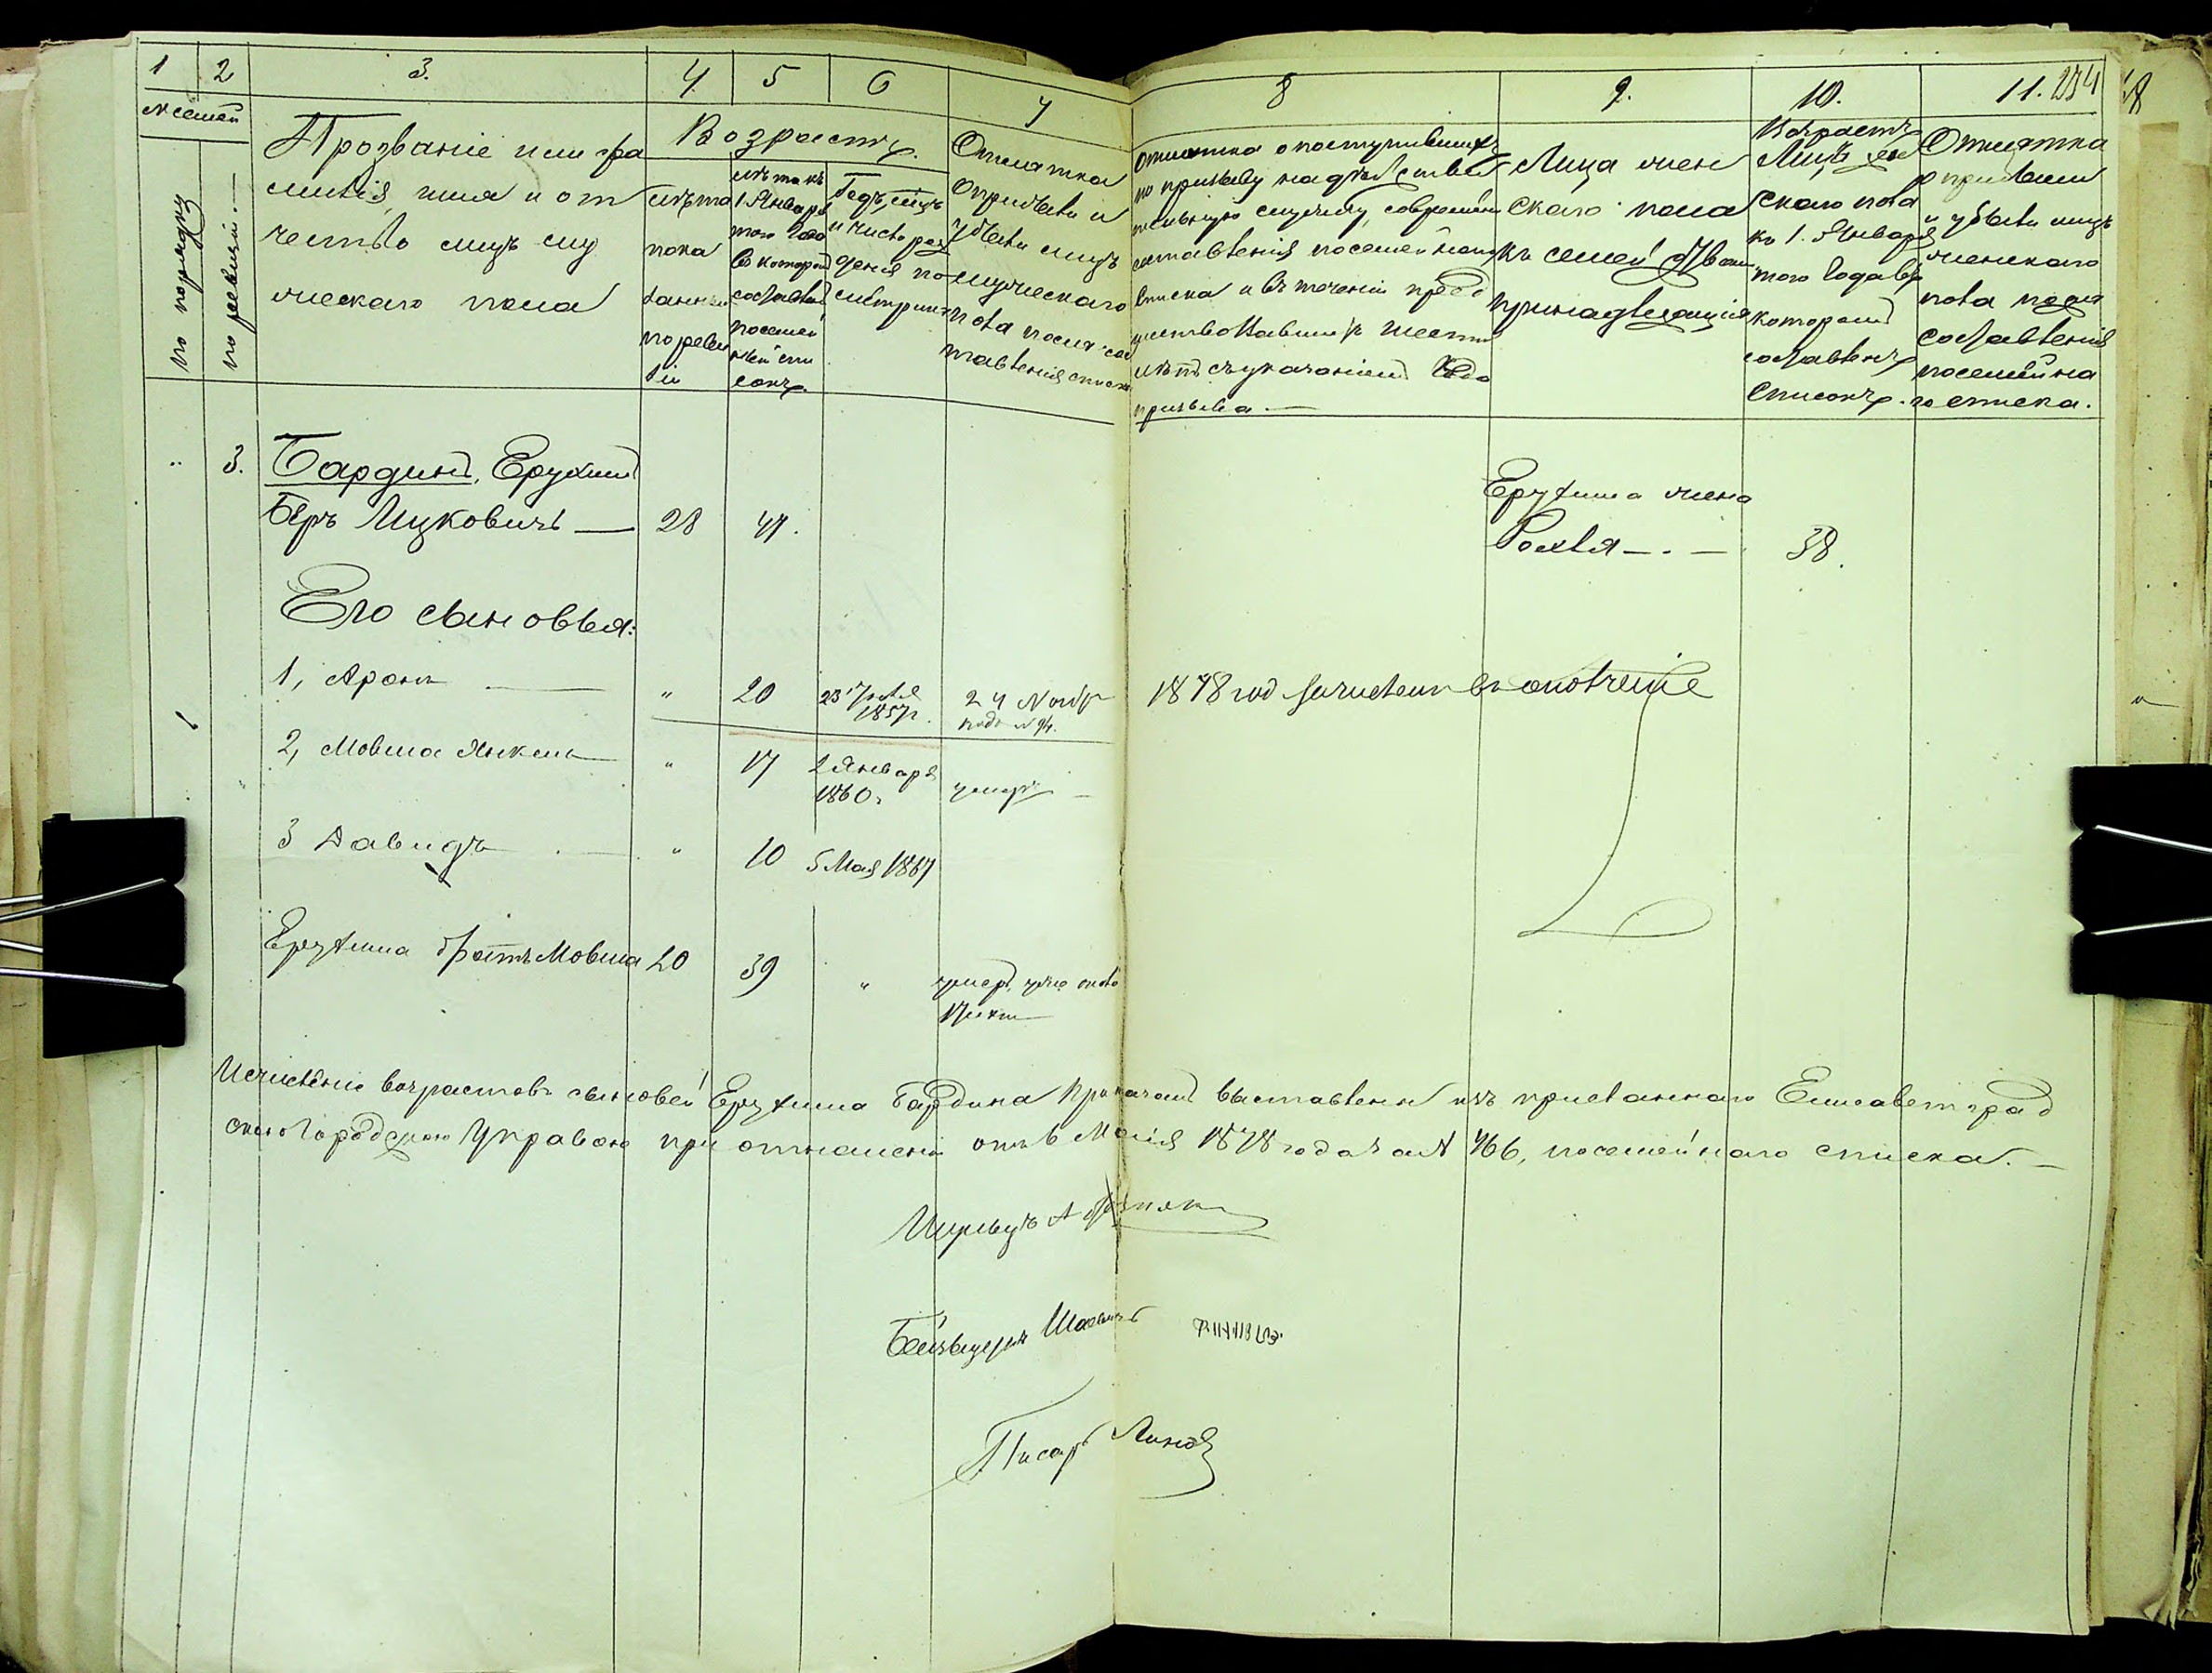 1 2 3. 4 5 6 7 8 9. 10. 11. 234
№ семей
по порядку
по ревизіи.
Прозваніе или фа
милія, имя и от
чество лицъ му
жескаго пола
Возрастъ.
лѣта
пока
занныя
по реви
зіи
лѣта къ
1 Января
того года
въ которомъ
составленъ
посемей
ный спи
сокъ.
Годъ, мѣсяцъ
и число рож
денія по
метрикѣ
Отмѣтка
о прибыли и
убыли лицъ
мужескаго
пола послѣ сос
тавленія списка
Отмѣтка о поступившихъ
по призыву на дѣйстви
тельную службу, со времени
составленія посемейнаго
списка и въ теченіи пред
шествовавшихъ шести
лѣтъ съ указаніемъ года
призыва.
Лица жен
скаго пола
къ семействамъ
принадлежащія
Возрастъ
лицъ жен
скаго пола
къ 1. Января
того года въ
которомъ
составленъ
списокъ.
Отмѣтка
о прибыли
и убыли лицъ
женскаго
пола послѣ
составленія
посемейна
го списка.
" 3. Бардинъ, Ерухимъ
Беръ Ицковичъ — 28 47.
Ерухима жена
Рохля — . — 38.
Его сыновья:
1, Аронъ — " 20 23 1857 г. 24 Ноябр 1878 год зачисленъ въ ополченіе
2, Мовша Янкель — " 17 2 Января 1860 г. умеръ —
3 Давидъ — " 10 5 Мая 1867
Ерухима братъ Мовша 20 39 " умеръ уже около
17 лѣтъ
Исчисленіе возрастовъ сыновей Ерухима Бардина выставлены изъ присланнаго Елисаветград
скою Городскою Управою при отношеніи отъ 6 1878 года за № 766, посемейнаго списка. —
Писарь